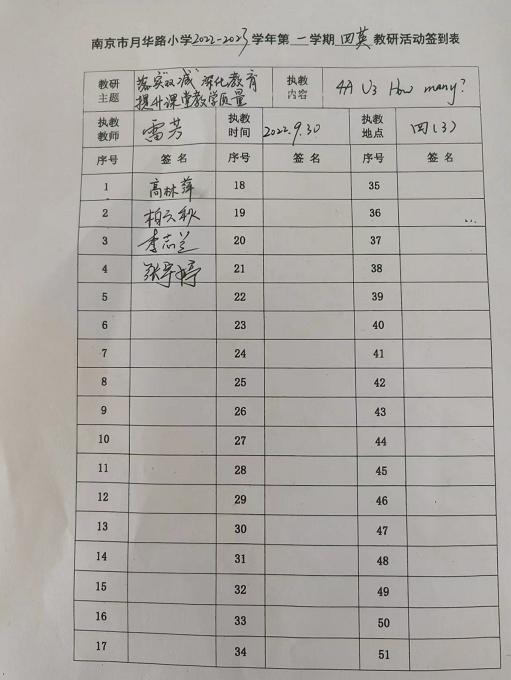 南京市月华路小学2022-2023学年第一学期四英教研活动签到表
教研主题 落实"双减" 深化教育 提升课堂教学质量 执教内容 4A U3 How many?
执教教师 雷芳 执教时间 2022.9.30 执教地点 四(3)
序号 签名 序号 签名 序号 签名
1 高林萍 18 35
2 柏云秋 19 36
3 李志兰 20 37
4 张宇婷 21 38
5 22 39
6 23 40
7 24 41
8 25 42
9 26 43
10 27 44
11 28 45
12 29 46
13 30 47
14 31 48
15 32 49
16 33 50
17 34 51